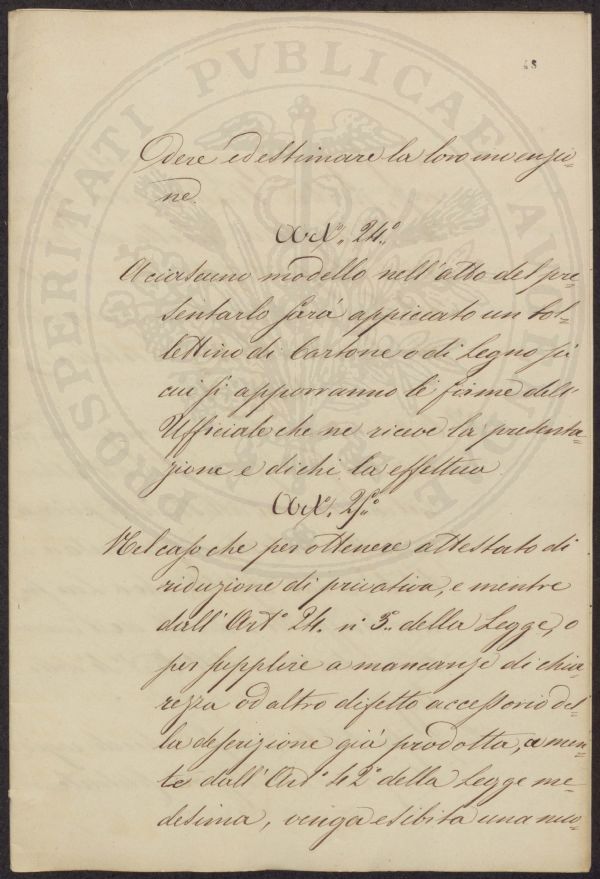 48
dere ed estimare la loro invenzio-
ne.
Art.º 24.º
A ciascuno modello nell'atto del pre-
sentarlo sarà appiccato un bol-
lettino di Cartone o di Legno su
cui si apporranno le firme dell'
Ufficiale che ne riceve la presenta-
zione e di chi la effettua
Art.º 25.º
Nel caso che per ottenere attestato di
riduzione di privativa, e mentre
dall'Artº 24. nº 5.. della Legge, o
per supplire a mancanze di chia-
rezza od altro difetto accessorio del-
la descrizione già prodotta, a men-
te dall'Artº 42º della Legge me-
desima, venga esibita una nuo-
PROSPERITATI PVBLICAE